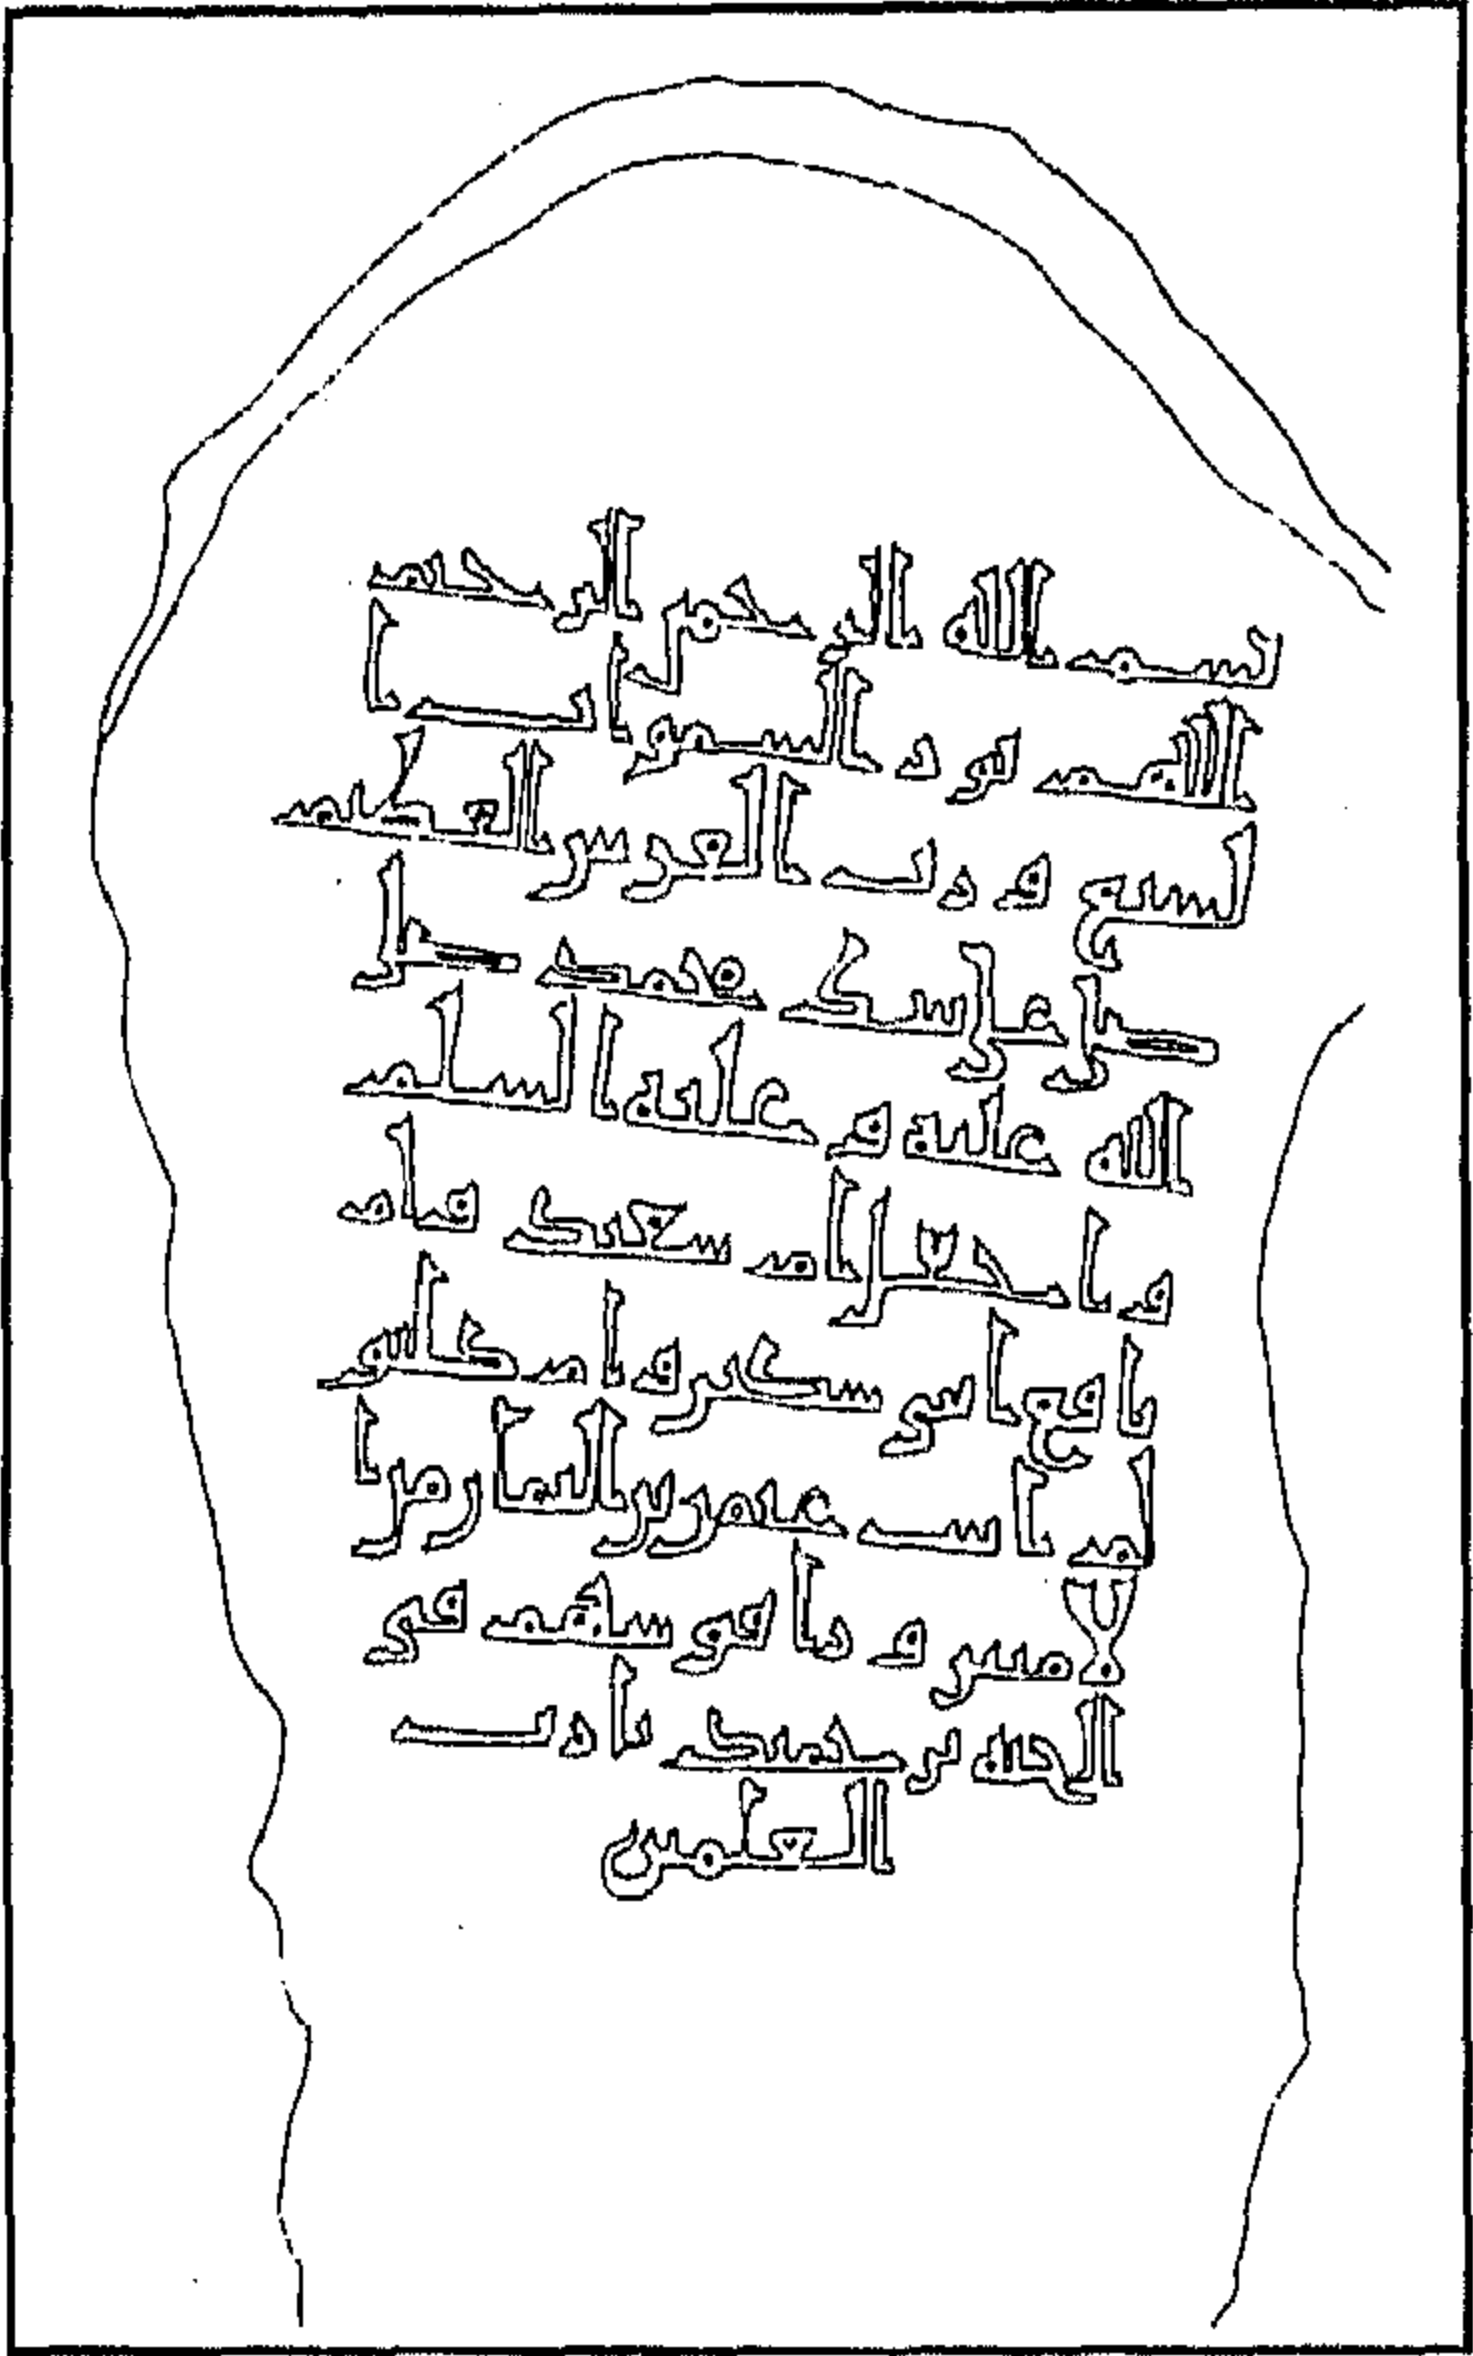 بسم الله الرحمن الرحيم
اللهم نور السموت ا
لسبع و رب العرش العظيم
صلي على نبيك محمد صلى
الله عليه و عليه السلم
و اجعل ام سعيد و ام
نافع ابني بكير و ام كلثو
م ابنت عمر بن من ا
لامنين و رافق بينهم في
الجنة برحمتك يا رب
العلمين